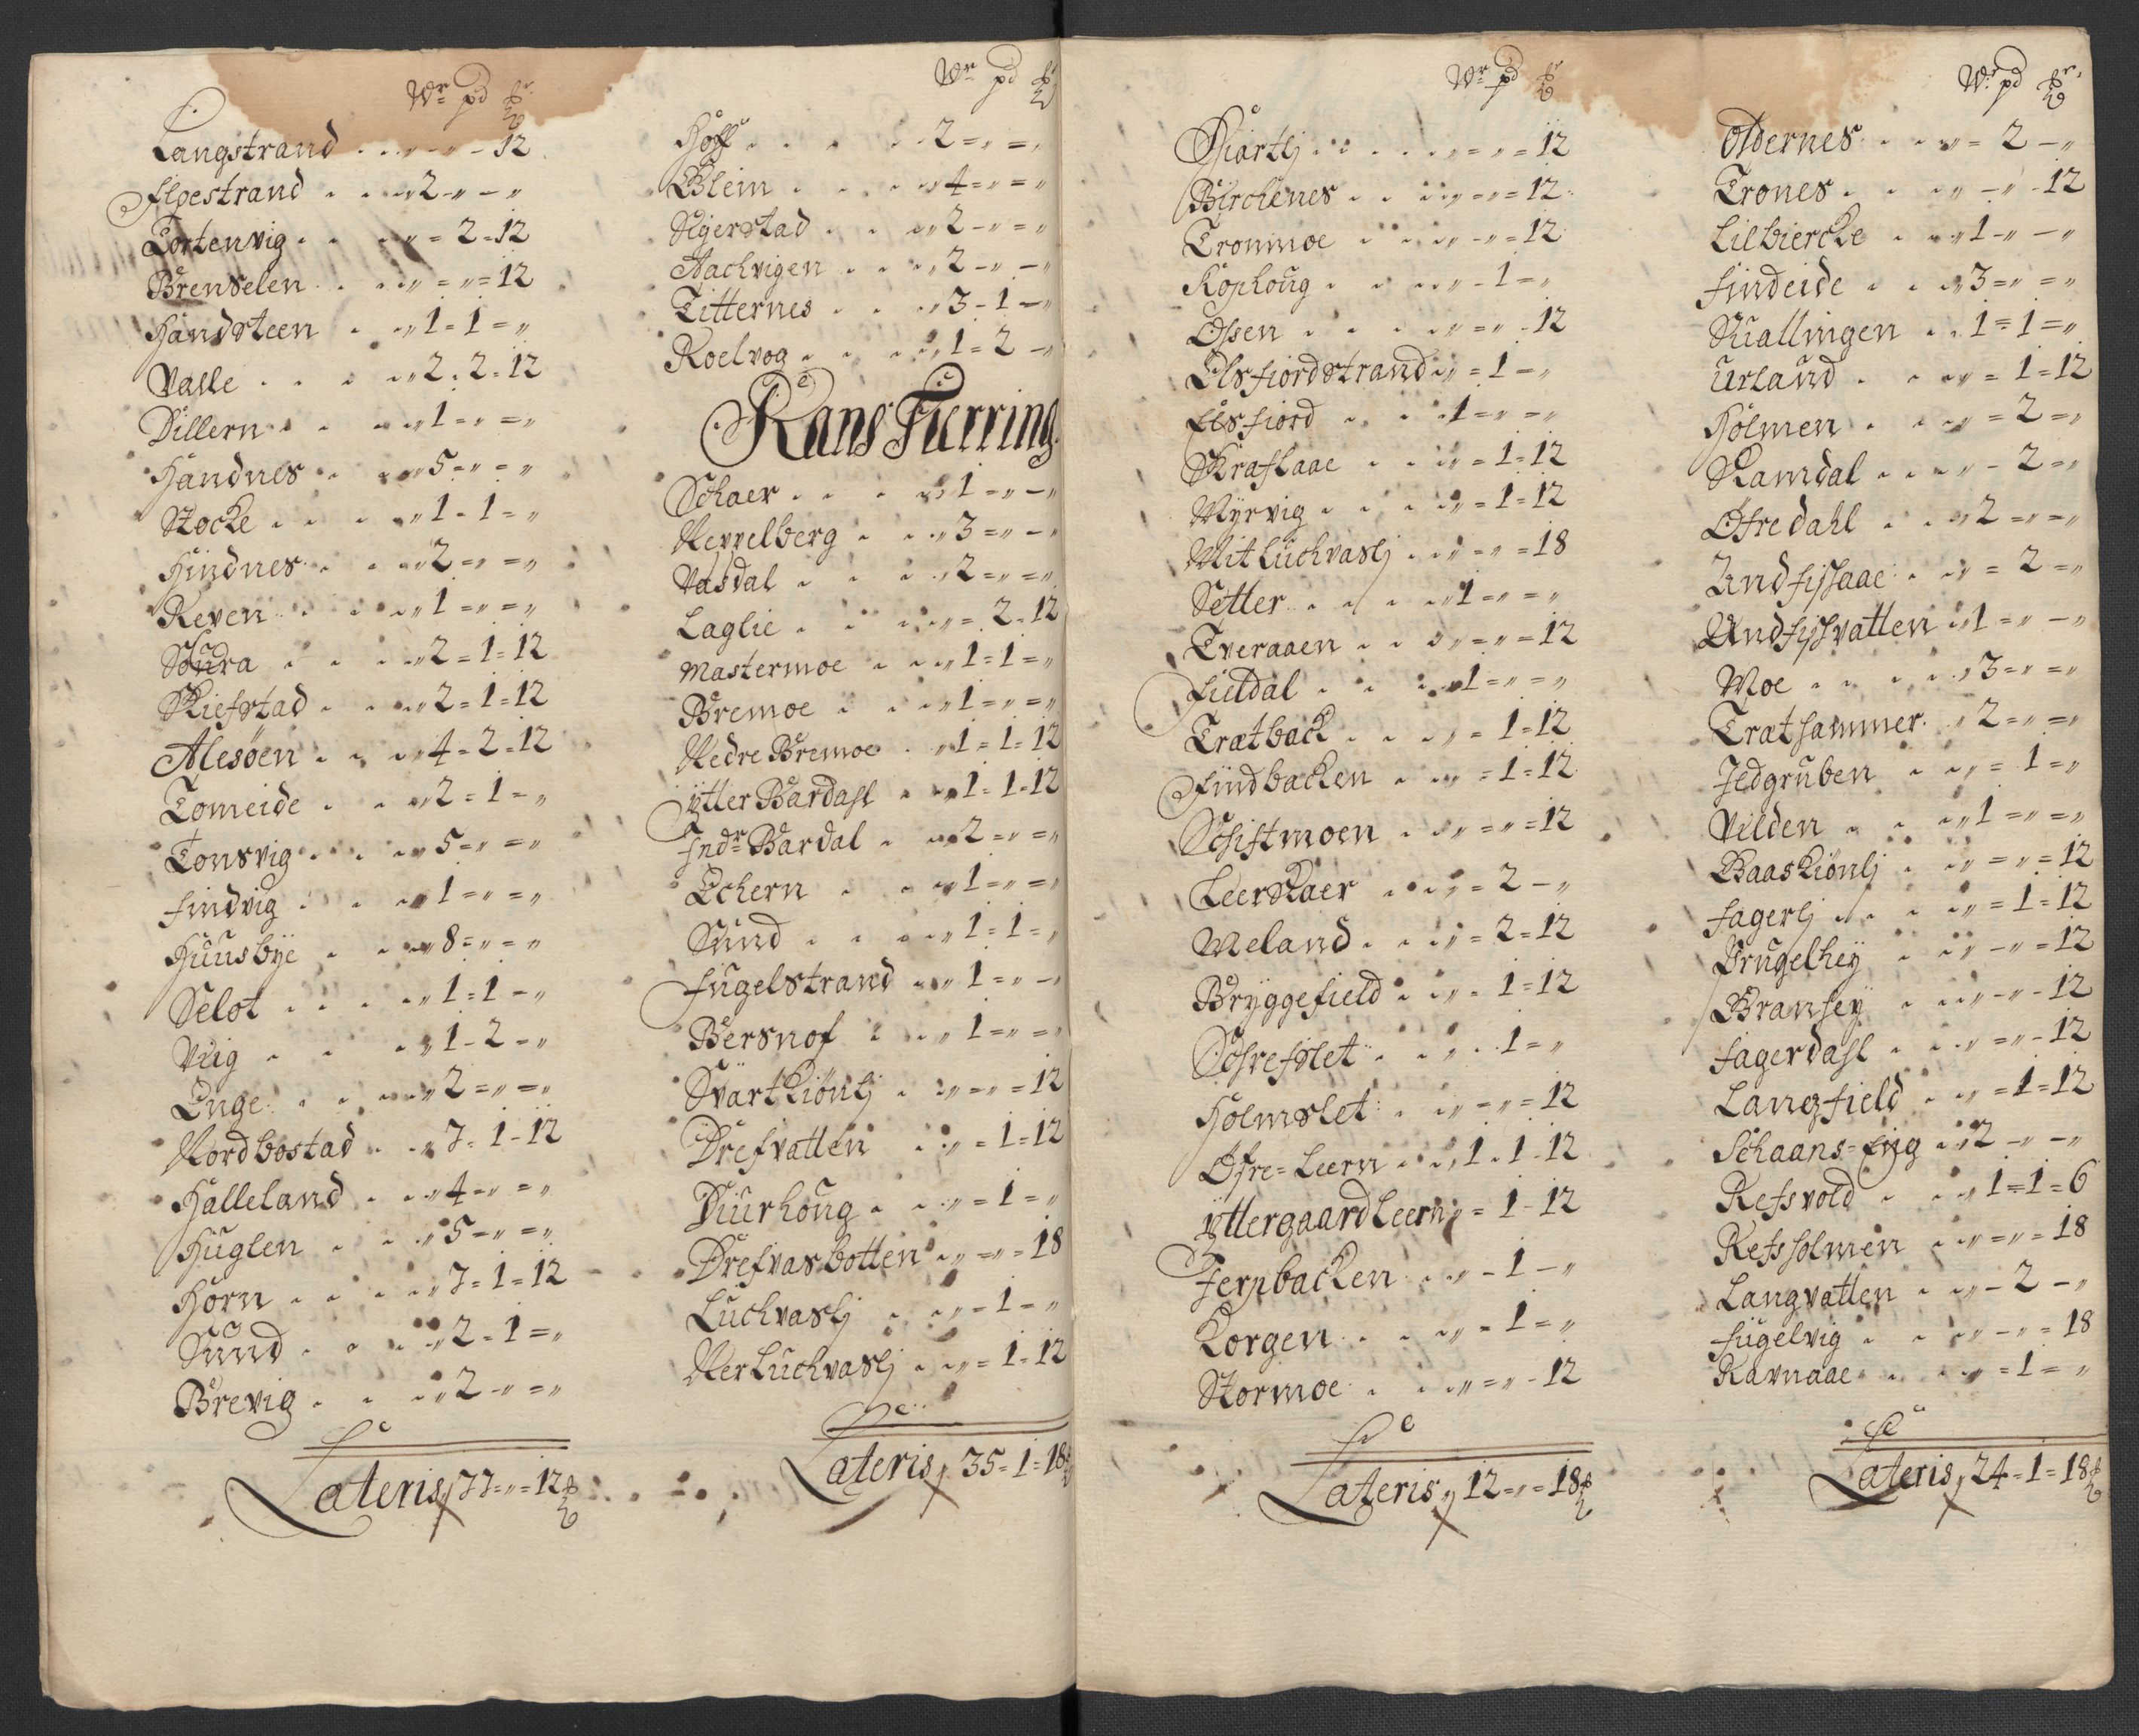 Wr pd
Langstrand . . „ - „ - 12
Floestrand . . „ 2 - „ - „
Tortenvig . . . „ = 2 = 12
Brenselen . . . „ = „ = 12
Handsteen . . „ 1 = 1 = „
Valle . . . . „ 2 = 2 = 12
Dillern . . . „ 1 = „ = „
Handnes . . „ 5 = „ = „
Stocke . . . . „ 1 - 1 = „
Hindnes . . . „ 2 = „ = „
Reven . . . . „ 1 = „ = „
Soura . . . . „ 2 = 1 = 12
Skiefstad . . . „ 2 = 1 = 12
Alesøen . . . „ 4 = 2 = 12
Tomeide . . „ 2 = 1 = „
Tonsvig . . . „ 5 = „ = „
Findvig . . . „ 1 = „ = „
Huusbÿe . . „ 8 = „ = „
Selot . . . . „ 1 = 1 - „
Viig . . . „ 1 - 2 - „
Enge . . . . „ 2 = „ = „
Nordbostad . . „ 7 = 1 - 12
Halleland . . „ 4 = „ = „
Huglen . . . „ 5 = „ = „
Horn . . . . „ 7 = 1 = 12
Sund . . . . „ 2 = 1 = „
Brevig . . . „ 2 - „ = „
Lateris 77 = „ = 12
Wr pd
Hoff . . . . 2 = „ = „
Blein . . . . „ 4 = „ = „
Sigerstad . . „ 2 - „ = „
Aachvigen . . . „ 2 - „ - „
Titternes . . . „ 3 - 1 - „
Roelvog . . . . „ 1 = 2 - „
Rans Fierring
Schaer . . . . „ 1 = „ - „
Neppelberg . . . „ 3 = „ - „
Vasdal . . . . „ 2 = „ = „
Laglie . . . . „ = 2 = 12
Mastermoe . . . „ 1 = 1 = „
Bremoe . . . „ 1 = „ = „
Nedre Bremoe . „ 1 = 1 = 12
Ÿtter Bardahl . „ 1 = 1 = 12
Indr Bardal . „ 2 = „ = „
Echern . . . „ 1 = „ = „
Sund . . . . „ 1 = 1 = „
Fugelstrand . „ 1 = „ - „
Bersnof . . . „ 1 = „ = „
Svartkiønlj . „ = „ = 12
Drefvatten . . „ = 1 = 12
Diurhoug . . . „ = 1 = „
Drefvasbotten . „ = „ = 18
Luchvaslj . . . „ = 1 = „
Ner Luchvaslj . . „ = 1 = 12
Lateris 35 = 1 = 18
Wr pd
Hiartlj . . . . „ = „ = 12
Birchenes . . . „ = „ = 12
Trommoe . . . „ - „ = 12
Kophoug . . . . „ - 1 = „
Olsen . . . . „ = „ - 12
Elsfiordstrand „ = 1 - „
Elsfiord . . . 1 = „ = „
Skraflaae . . . „ = 1 = 12
Myrvig . . . . „ = 1 = 12
Mit Luchvaslj . . „ = „ = 18
Setter . . . . „ 1 = „ = „
Tveraaen . . . „ = „ = 12
Fieldal . . . „ 1 = „ = „
Trætback . . . „ = 1 = 12
Findbacken . . „ = 1 = 12
Schistmoen . . „ = „ = 12
Leerskaer . . „ = 2 - „
Meland . . . „ = 2 = 12
Bryggefield . „ = 1 = 12
Schrefslet . . „ . 1 = „
Holmslet . . „ = „ = 12
Øfre = Leern . . „ 1 . 1 - 12
Ÿttergaard Leern „ = 1 - 12
Jernbacken . . „ - 1 - „
Korgen . . . „ = 1 = „
Stormoe . . . „ = „ - 12
Lateris „ 12 = „ = 18
Wr pd
Oldernes . . „ = 2 - „
Trones . . . „ - „ - 12
Lilbiercke . . „ 1 - „ - „
Findeide . . . „ 3 = „ = „
Suallingen . . 1 = 1 = „
Urland . . . „ = 1 = 12
Holmen . . . „ = 2 = „
Ramdal . . . „ - 2 = „
Øfredahl . . . „ 2 = „ = „
Indfissaae . . „ = 2 = „
Undfissvatten . „ 1 = „ - „
Moe . . . . . „ 3 = „ = „
Træthammer . „ 2 = „ = „
Jldgruben . . „ = 1 = „
Velden . . . „ 1 = „ = „
Baaskiønlj . . „ = „ = 12
Fagerlj . . . . „ = 1 = 12
Drugelhey . . „ - „ = 12
Bransey . . . „ - „ - 12
Fagerdahl . . . „ = „ - 12
Langfield . . „ = 1 = 12
Schaans = Eng . „ 2 - „ - „
Refsvold . . . „ 1 = 1 = 6
Refsholmen . . „ = „ = 18
Langvatten . . „ - 2 - „
Fugelvig . . . „ - „ = 18
Ravnaae . . . „ = 1 = „
Lateris „ 24 = 1 = 18